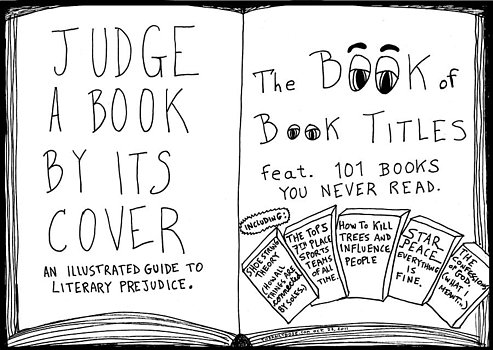 JUDGE
A BOOK
BY ITS
COVER
AN ILLUSTRATED GUIDE TO
LITERARY PREJUDICE.
The BOOK of
BOOK TITLES
feat. 101 BOOKS
YOU NEVER READ.
INCLUDING:
SHOE STRING
THEORY
(HOW ALL
THINGS ARE
CONNECTED
BY SOLES.)
THE TOP 5
7TH PLACE
SPORTS
TEAMS
OF ALL
TIME.
HOW TO KILL
TREES AND
INFLUENCE
PEOPLE
STAR
PEACE
EVERYTHING
IS
FINE.
THE
CONFESSIONS
OF GOD.
(WHAT I
MEANT.)